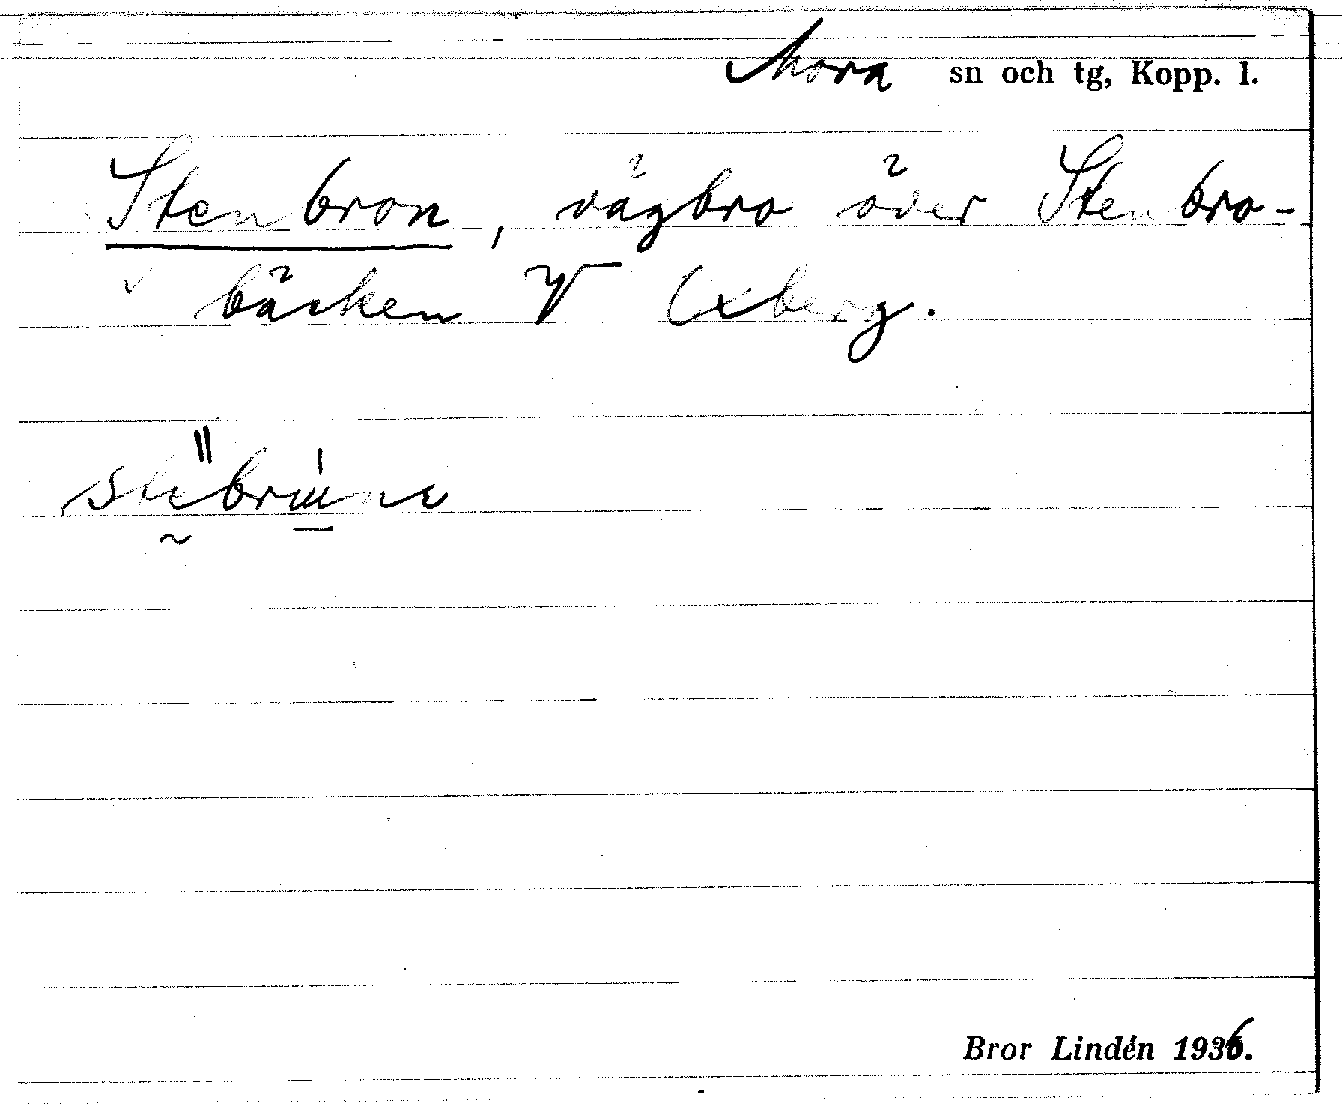 Mora sn och tg, Kopp. l.
Stenbron, vägbro över Stenbro-
bäcken V Oxberg.
Bror Lindén 1936.